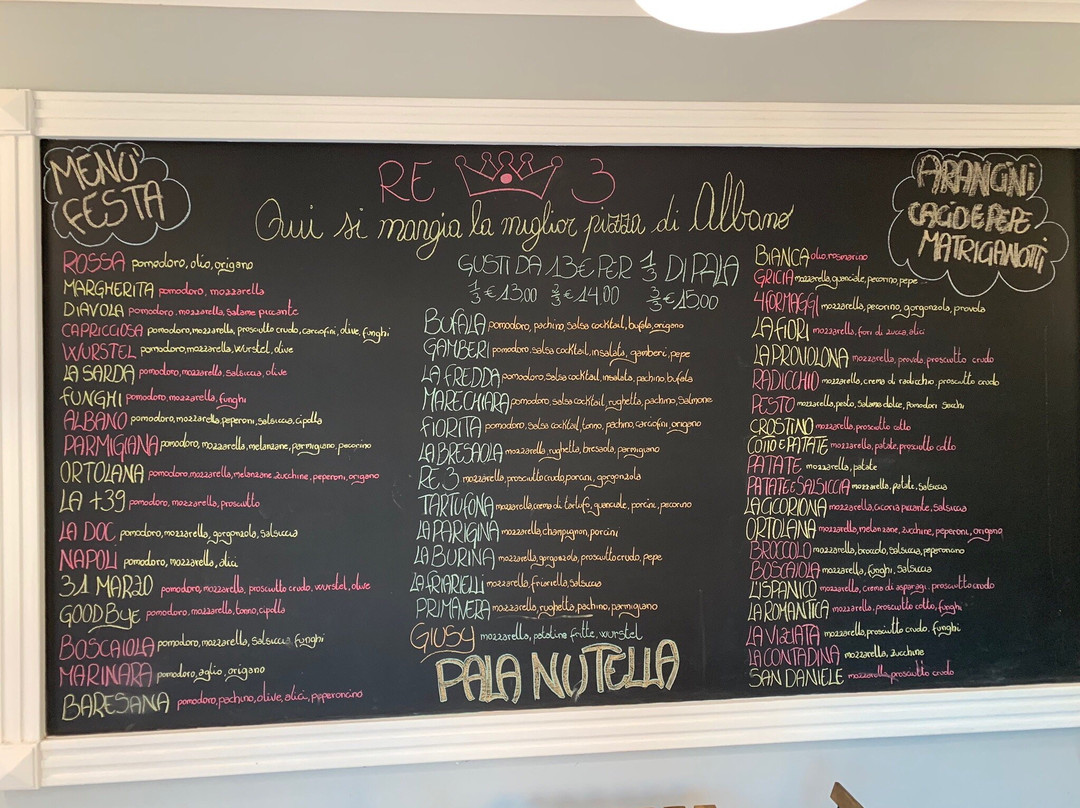 MENÙ
FESTA
RE 3
Qui si mangia la miglior pizza di Albano
ARANCINI
CACIO E PEPE
MATRIGIANOTTI
ROSSA pomodoro, olio, origano
MARGHERITA pomodoro, mozzarella
DIAVOLA pomodoro, mozzarella, salame piccante
CAPRICCIOSA pomodoro, mozzarella, prosciutto crudo, carciofini, olive, funghi
WURSTEL pomodoro, mozzarella, wurstel, olive
LA SARDA pomodoro, mozzarella, salsiccia, olive
FUNGHI pomodoro, mozzarella, funghi
ALBANO pomodoro, mozzarella, peperoni, salsiccia, cipolla
PARMIGIANA pomodoro, mozzarella, melanzane, parmigiano, pecorino
ORTOLANA pomodoro, mozzarella, melanzane, zucchine, peperoni, origano
LA +39 pomodoro, mozzarella, prosciutto
LA DOC pomodoro, mozzarella, gorgonzola, salsiccia
NAPOLI pomodoro, mozzarella, alici
31 MARZO pomodoro, mozzarella, prosciutto crudo, wurstel, olive
GOODBYE pomodoro, mozzarella, tonno, cipolla
BOSCAIOLA pomodoro, mozzarella, salsiccia, funghi
MARINARA pomodoro, aglio, origano
BARESANA pomodoro, pachino, olive, alici, pepperoncino
GUSTI DA 13€ PER 1/3 DI PALA
1/3 €13,00 2/3 €14.00 3/3 €15,00
BUFALA pomodoro, pachino, salsa cocktail, bufala, origano
GAMBERI pomodoro, salsa cocktail, insalata, gamberi, pepe
LA FREDDA pomodoro, salsa cocktail, insalata, pachino, bufala
MARECHIARA pomodoro, salsa cocktail, rughetta, pachino, salmone
FIORITA pomodoro, salsa cocktail, tonno, pachino, carciofini, origano
LA BRESAOLA mozzarella, rughetta, bresaola, parmigiano
RE 3 mozzarella, prosciutto crudo, porcini, gorgonzola
TARTUFONA mozzarella, crema di tartufo, guanciale, porcini, pecorino
LA PARIGINA mozzarella, champignon, porcini
LA BURINA mozzarella, gorgonzola, prosciutto crudo, pepe
LA FRIARIELLI mozzarella, friarielli, salsiccia
PRIMAVERA mozzarella, rughetta, pachino, parmigiano
GIUSY mozzarella, patatine fritte, wurstel
PALA NUTELLA
BIANCA olio, rosmarino
GRICIA mozzarella, guanciale, pecorino, pepe
4 FORMAGGI mozzarella, pecorino, gorgonzola, provola
LA FIORI mozzarella, fiori di zucca, alici
LA PROVOLONA mozzarella, provola, prosciutto crudo
RADICCHIO mozzarella, crema di radicchio, prosciutto crudo
PESTO mozzarella, pesto, salame dolce, pomodori secchi
CROSTINO mozzarella, prosciutto cotto
COTTO E PATATE mozzarella, patate, prosciutto cotto
PATATE mozzarella, patate
PATATE E SALSICCIA mozzarella, patate, salsiccia
LA CICORIONA mozzarella, cicoria piccante, salsiccia
ORTOLANA mozzarella, melanzane, zucchine, peperoni, origano
BROCCOLO mozzarella, broccolo, salsiccia, peperoncino
BOSCAIOLA mozzarella, funghi, salsiccia
L'ISPANICO mozzarella, crema di asparagi, prosciutto crudo
LA ROMANTICA mozzarella, prosciutto cotto, funghi
LA VIZIATA mozzarella, prosciutto crudo, funghi
LA CONTADINA mozzarella, zucchine
SAN DANIELE mozzarella, prosciutto crudo